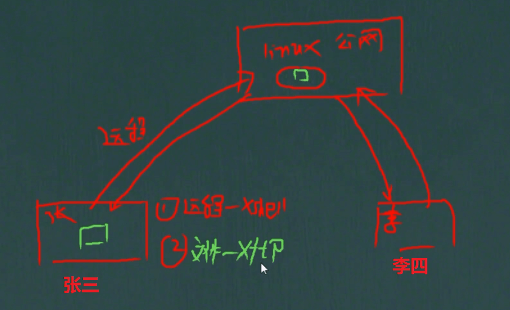 linux 公网
远程
张
① 远程-Xshell
② 文件-Xftp
李
张三
李四